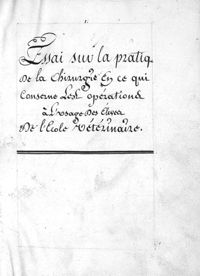 1.
Essai sur la pratiq
de la chirurgie En ce qui
Conserne Les opérations
à L'usage des Eleves
De l'Ecole Vétérinaire.